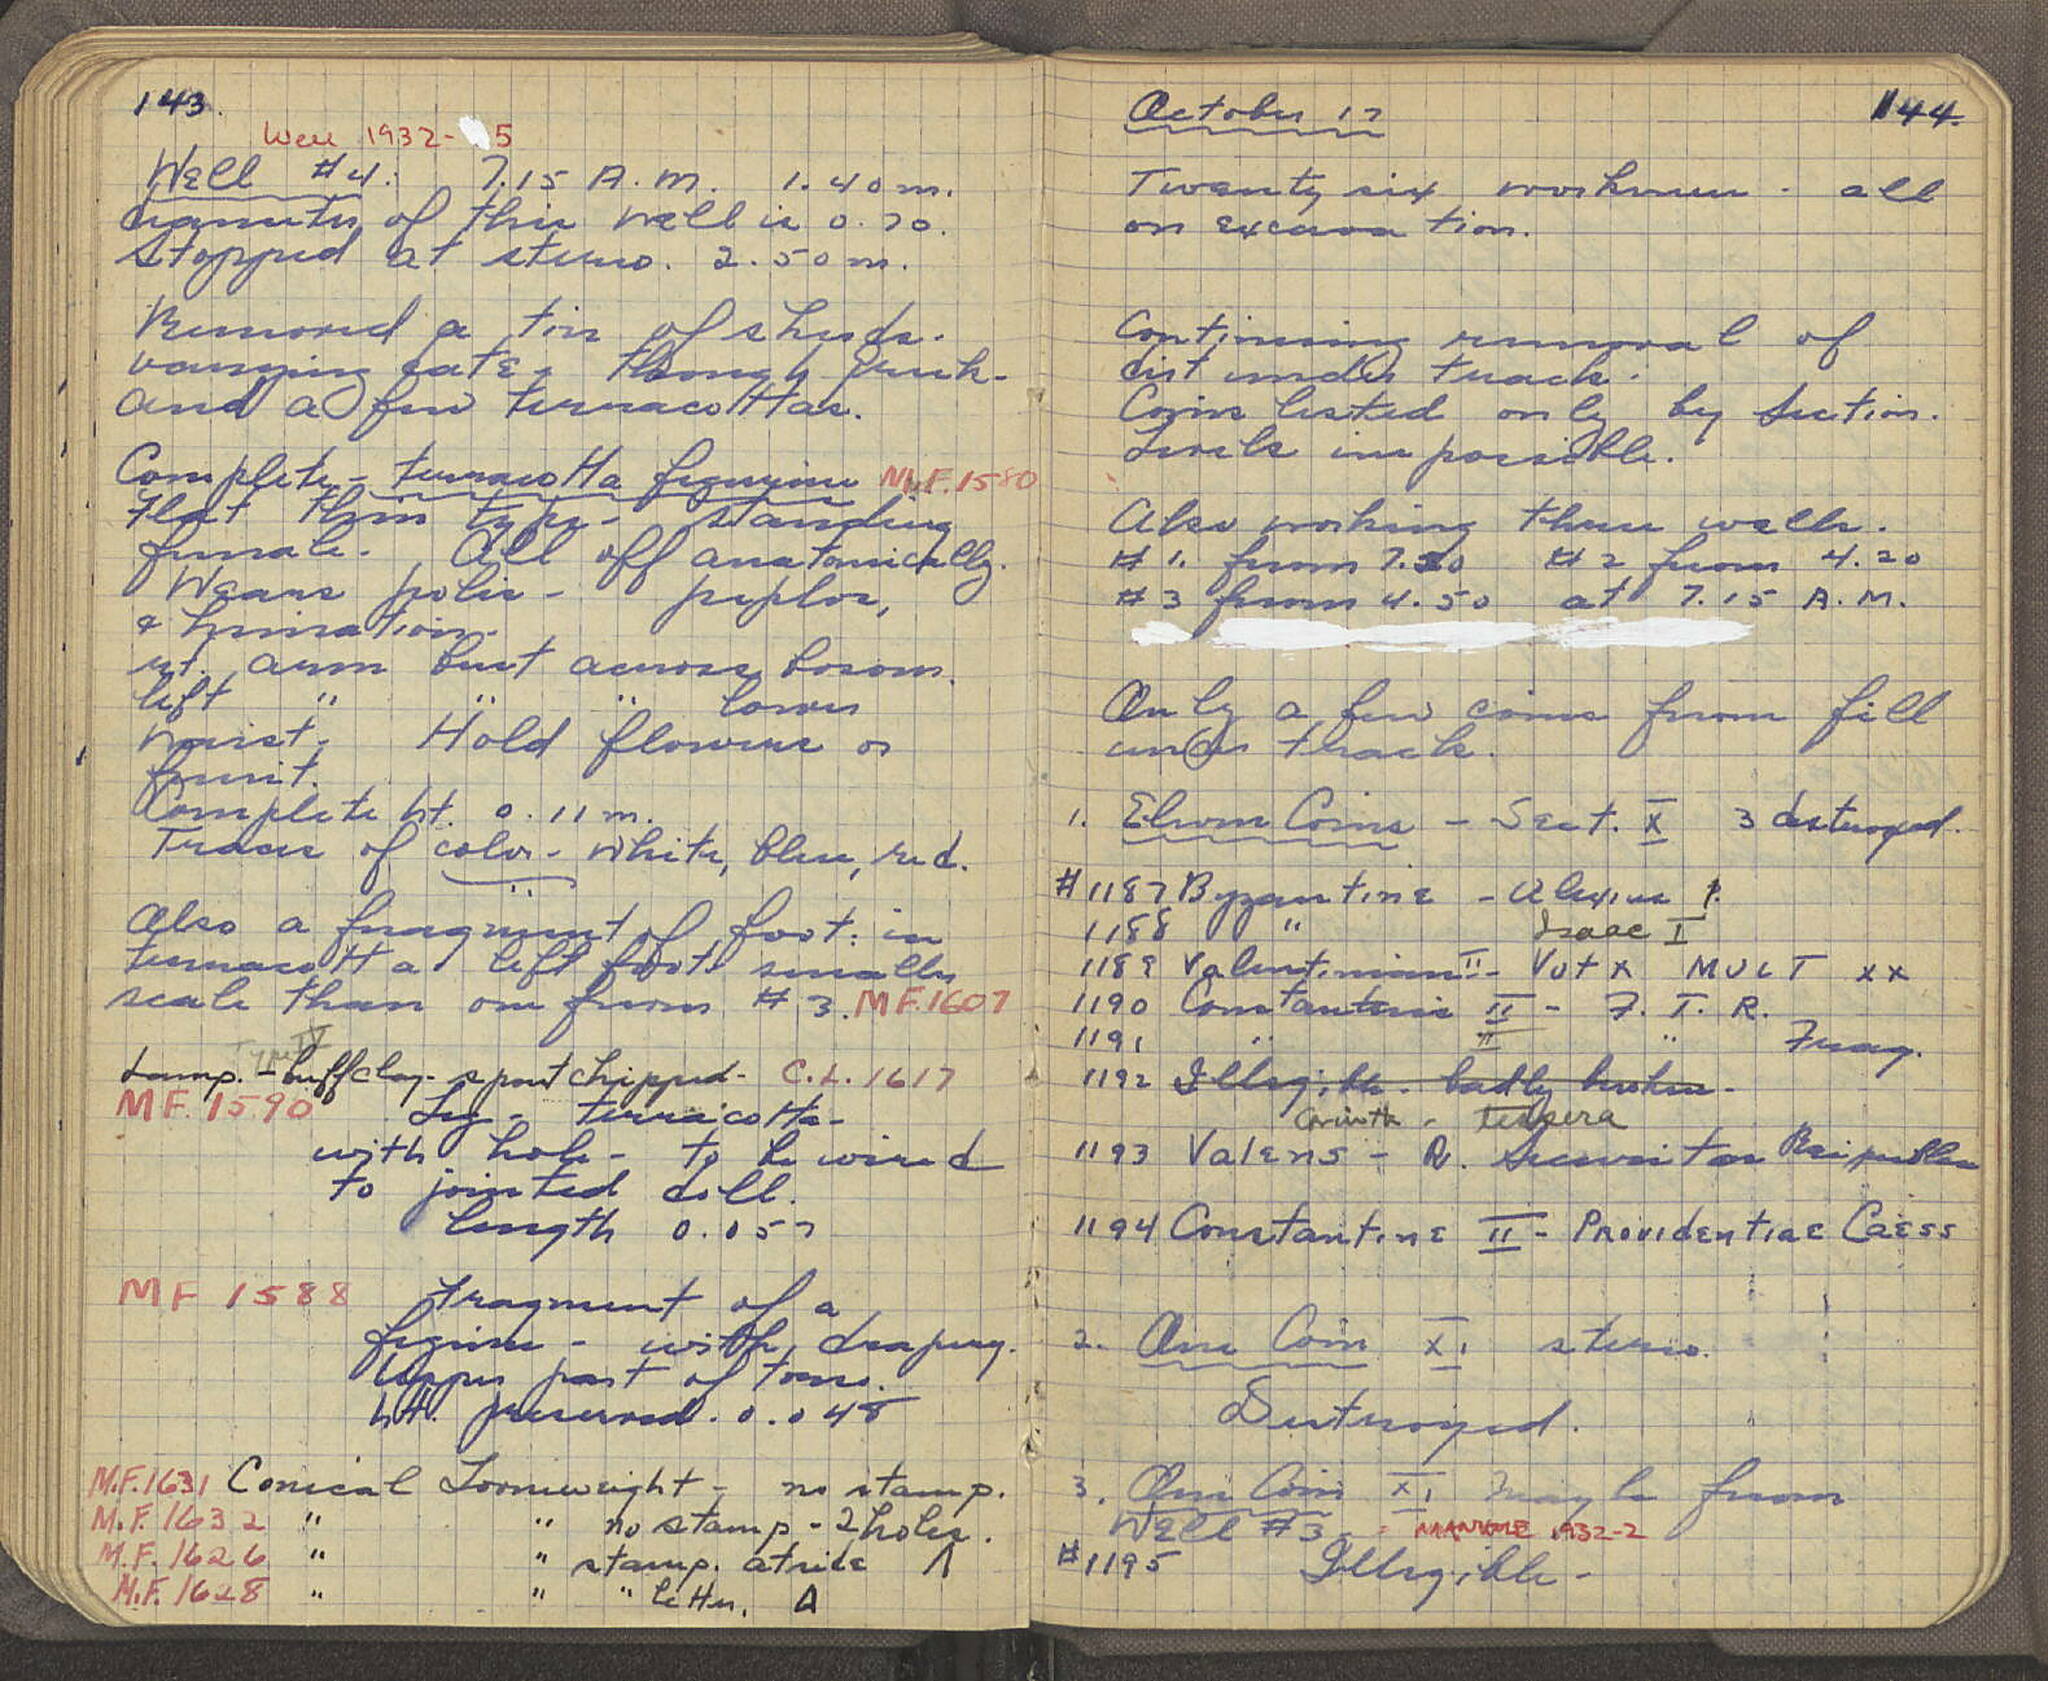 143.
Well 1932-5
Well #4: 7.15 A.M. 1.40 m.
diameter of this well is 0.70.
Stopped at stereo. 2.50 m.
Removed a tin of sherds.
varying date, though Greek-
and a few terracottas.
Complete - terracotta figurine M.F. 1580
Flat thin type - standing
female. All off anatomically.
Wears polos - peplos,
& himation.
rt. arm bent across bosom.
left " " " lower
waist. Hold flowers or
fruit.
Complete ht. 0.11 m.
Traces of color - white, blue, red.
Also a fragment of foot: in
terracotta left foot smaller
scale than one from #3. MF. 1607
Type IV
Lamp. - buff clay - spout chipped - C.L. 1617
MF. 1590 Leg - terracotta -
with hole - to be wired
to jointed doll.
length 0.057
MF 1588 Fragment of a
figurine - with drapery.
Upper part of torso.
ht. preserved. 0.048
M.F. 1631 Conical Loomweight - no stamp.
M.F. 1632 " " no stamp - 2 holes.
M.F. 1626 " " stamp. at side Λ
M.F. 1628 " " " letter. Δ
144.
October 17
Twenty six workmen - all
on excavation.
Continuing removal of
dirt under track.
Coins listed only by section.
Levels impossible.
Also working three wells.
#1. from 7.30 #2 from 4.20
#3 from 4.50 at 7.15 A.M.
Only a few coins from fill
under track.
1. Eleven Coins - Sect. X 3 destroyed.
#1187 Byzantine - Alexius I.
1188 " Isaac I
1189 Valentinian II - Vot X MULT XX
1190 Constantius II - F. T. R.
1191 " II " Frag.
1192 Illegible - badly broken -
Corinth - tessera
1193 Valens - R. Securitas Reipublicae
1194 Constantine II - Providentiae Caess
2. One Coin XI stereo.
Destroyed.
3. One Coin XI May be from
Well #3 - = MANHOLE 1932-2
#1195 Illegible -